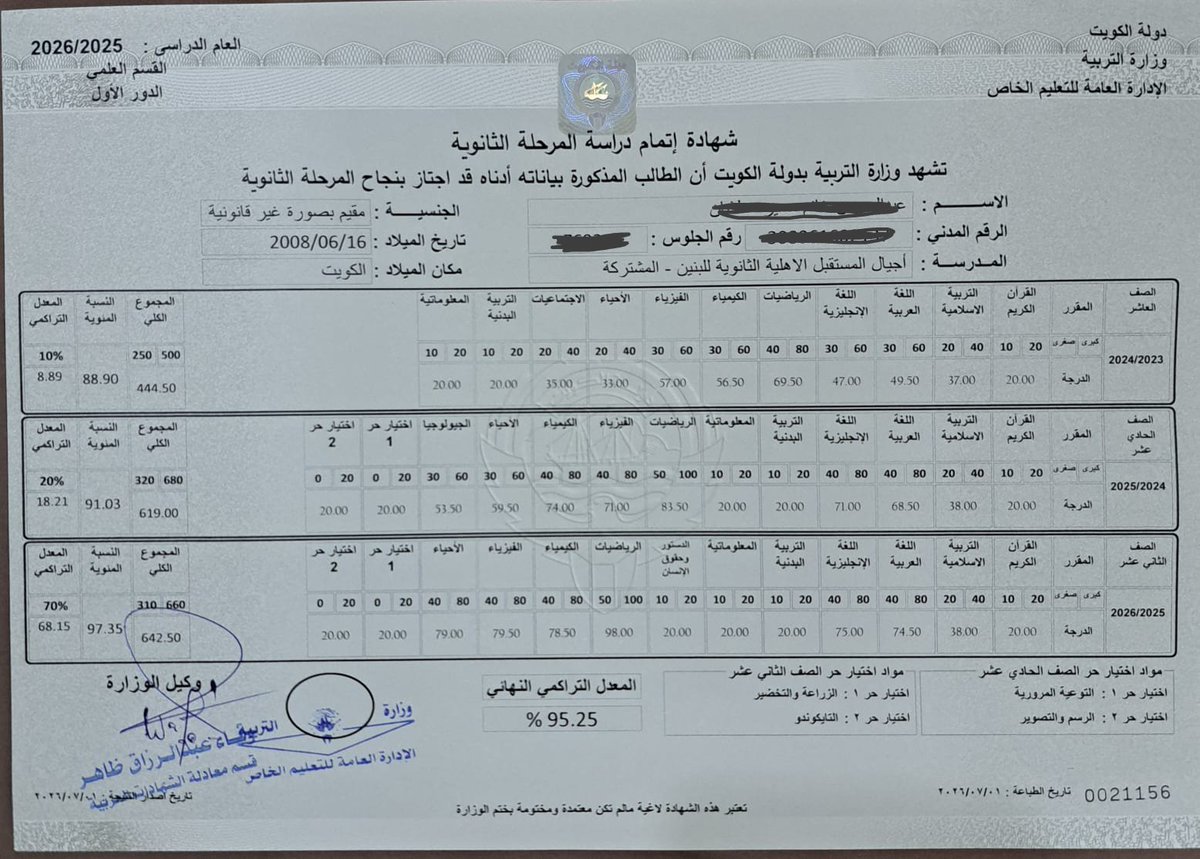 دولة الكويت
وزارة التربية
الإدارة العامة للتعليم الخاص
العام الدراسي : 2026/2025
القسم العلمي
الدور الأول
شهادة إتمام دراسة المرحلة الثانوية
تشهد وزارة التربية بدولة الكويت أن الطالب المذكورة بياناته أدناه قد اجتاز بنجاح المرحلة الثانوية
الاســـــم : الجنسيـــة : مقيم بصورة غير قانونية
الرقم المدني : رقم الجلوس : تاريخ الميلاد : 2008/06/16
المدرسـة : أجيال المستقبل الاهلية الثانوية للبنين - المشتركة مكان الميلاد : الكويت
الصف العاشر المقرر القرآن الكريم التربية الاسلامية اللغة العربية اللغة الإنجليزية الرياضيات الكيمياء الفيزياء الأحياء الاجتماعيات التربية البدنية المعلوماتية المجموع الكلي النسبة المئوية المعدل التراكمي
2024/2023 كبرى صغرى 20 10 40 20 60 30 60 30 80 40 60 30 60 30 40 20 40 20 20 10 20 10 500 250 10%
الدرجة 20.00 37.00 49.50 47.00 69.50 56.50 57.00 33.00 35.00 20.00 20.00 444.50 88.90 8.89
الصف الحادي عشر المقرر القرآن الكريم التربية الاسلامية اللغة العربية اللغة الإنجليزية التربية البدنية المعلوماتية الرياضيات الفيزياء الكيمياء الأحياء الجيولوجيا اختيار حر 1 اختيار حر 2 المجموع الكلي النسبة المئوية المعدل التراكمي
2025/2024 كبرى صغرى 20 10 40 20 80 40 80 40 20 10 20 10 100 50 80 40 80 40 60 30 60 30 20 0 20 0 680 320 20%
الدرجة 20.00 38.00 68.50 71.00 20.00 20.00 83.50 71.00 74.00 59.50 53.50 20.00 20.00 619.00 91.03 18.21
الصف الثاني عشر المقرر القرآن الكريم التربية الاسلامية اللغة العربية اللغة الإنجليزية التربية البدنية المعلوماتية الدستور وحقوق الإنسان الرياضيات الكيمياء الفيزياء الأحياء اختيار حر 1 اختيار حر 2 المجموع الكلي النسبة المئوية المعدل التراكمي
2026/2025 كبرى صغرى 20 10 40 20 80 40 80 40 20 10 20 10 20 10 100 50 80 40 80 40 80 40 20 0 20 0 660 310 70%
الدرجة 20.00 38.00 74.50 75.00 20.00 20.00 20.00 98.00 78.50 79.50 79.00 20.00 20.00 642.50 97.35 68.15
مواد اختيار حر الصف الحادي عشر
اختيار حر ١ : التوعية المرورية
اختيار حر ٢ : الرسم والتصوير
مواد اختيار حر الصف الثاني عشر
اختيار حر ١ : الزراعة والتخضير
اختيار حر ٢ : التايكوندو
المعدل التراكمي النهائي
% 95.25
وكيل الوزارة
وزارة التربية
الإدارة العامة للتعليم الخاص
عبدالرزاق ظاهر
قسم معادلة الشهادات
0021156 تاريخ الطباعة : ٢٠٢٦/٠٧/٠١
تعتبر هذه الشهادة لاغية مالم تكن معتمدة ومختومة بختم الوزارة